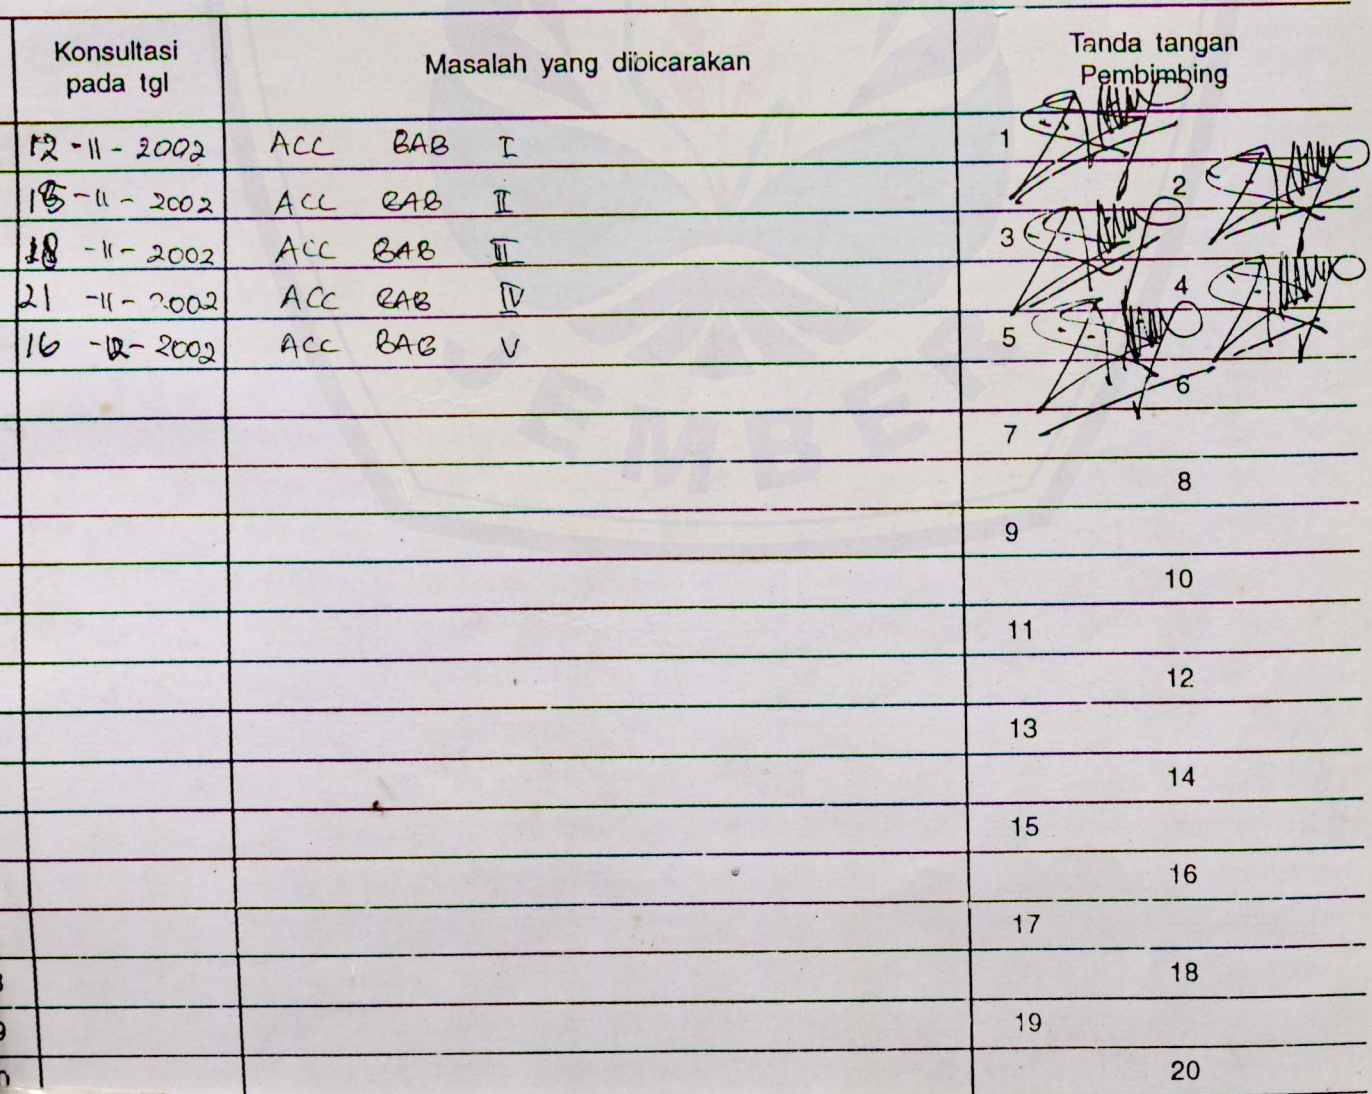 Konsultasi
pada tgl
Masalah yang dibicarakan
Tanda tangan
Pembimbing
12 - 11 - 2002 ACC BAB I 1
-11 - 2002 ACC BAB II 2
18 -11 - 2002 ACC BAB III 3
21 -11 - 2002 ACC BAB IV 4
16 -12- 2002 ACC BAB V 5
6
7
8
9
10
11
12
13
14
15
16
17
18
19
20
JEMBER